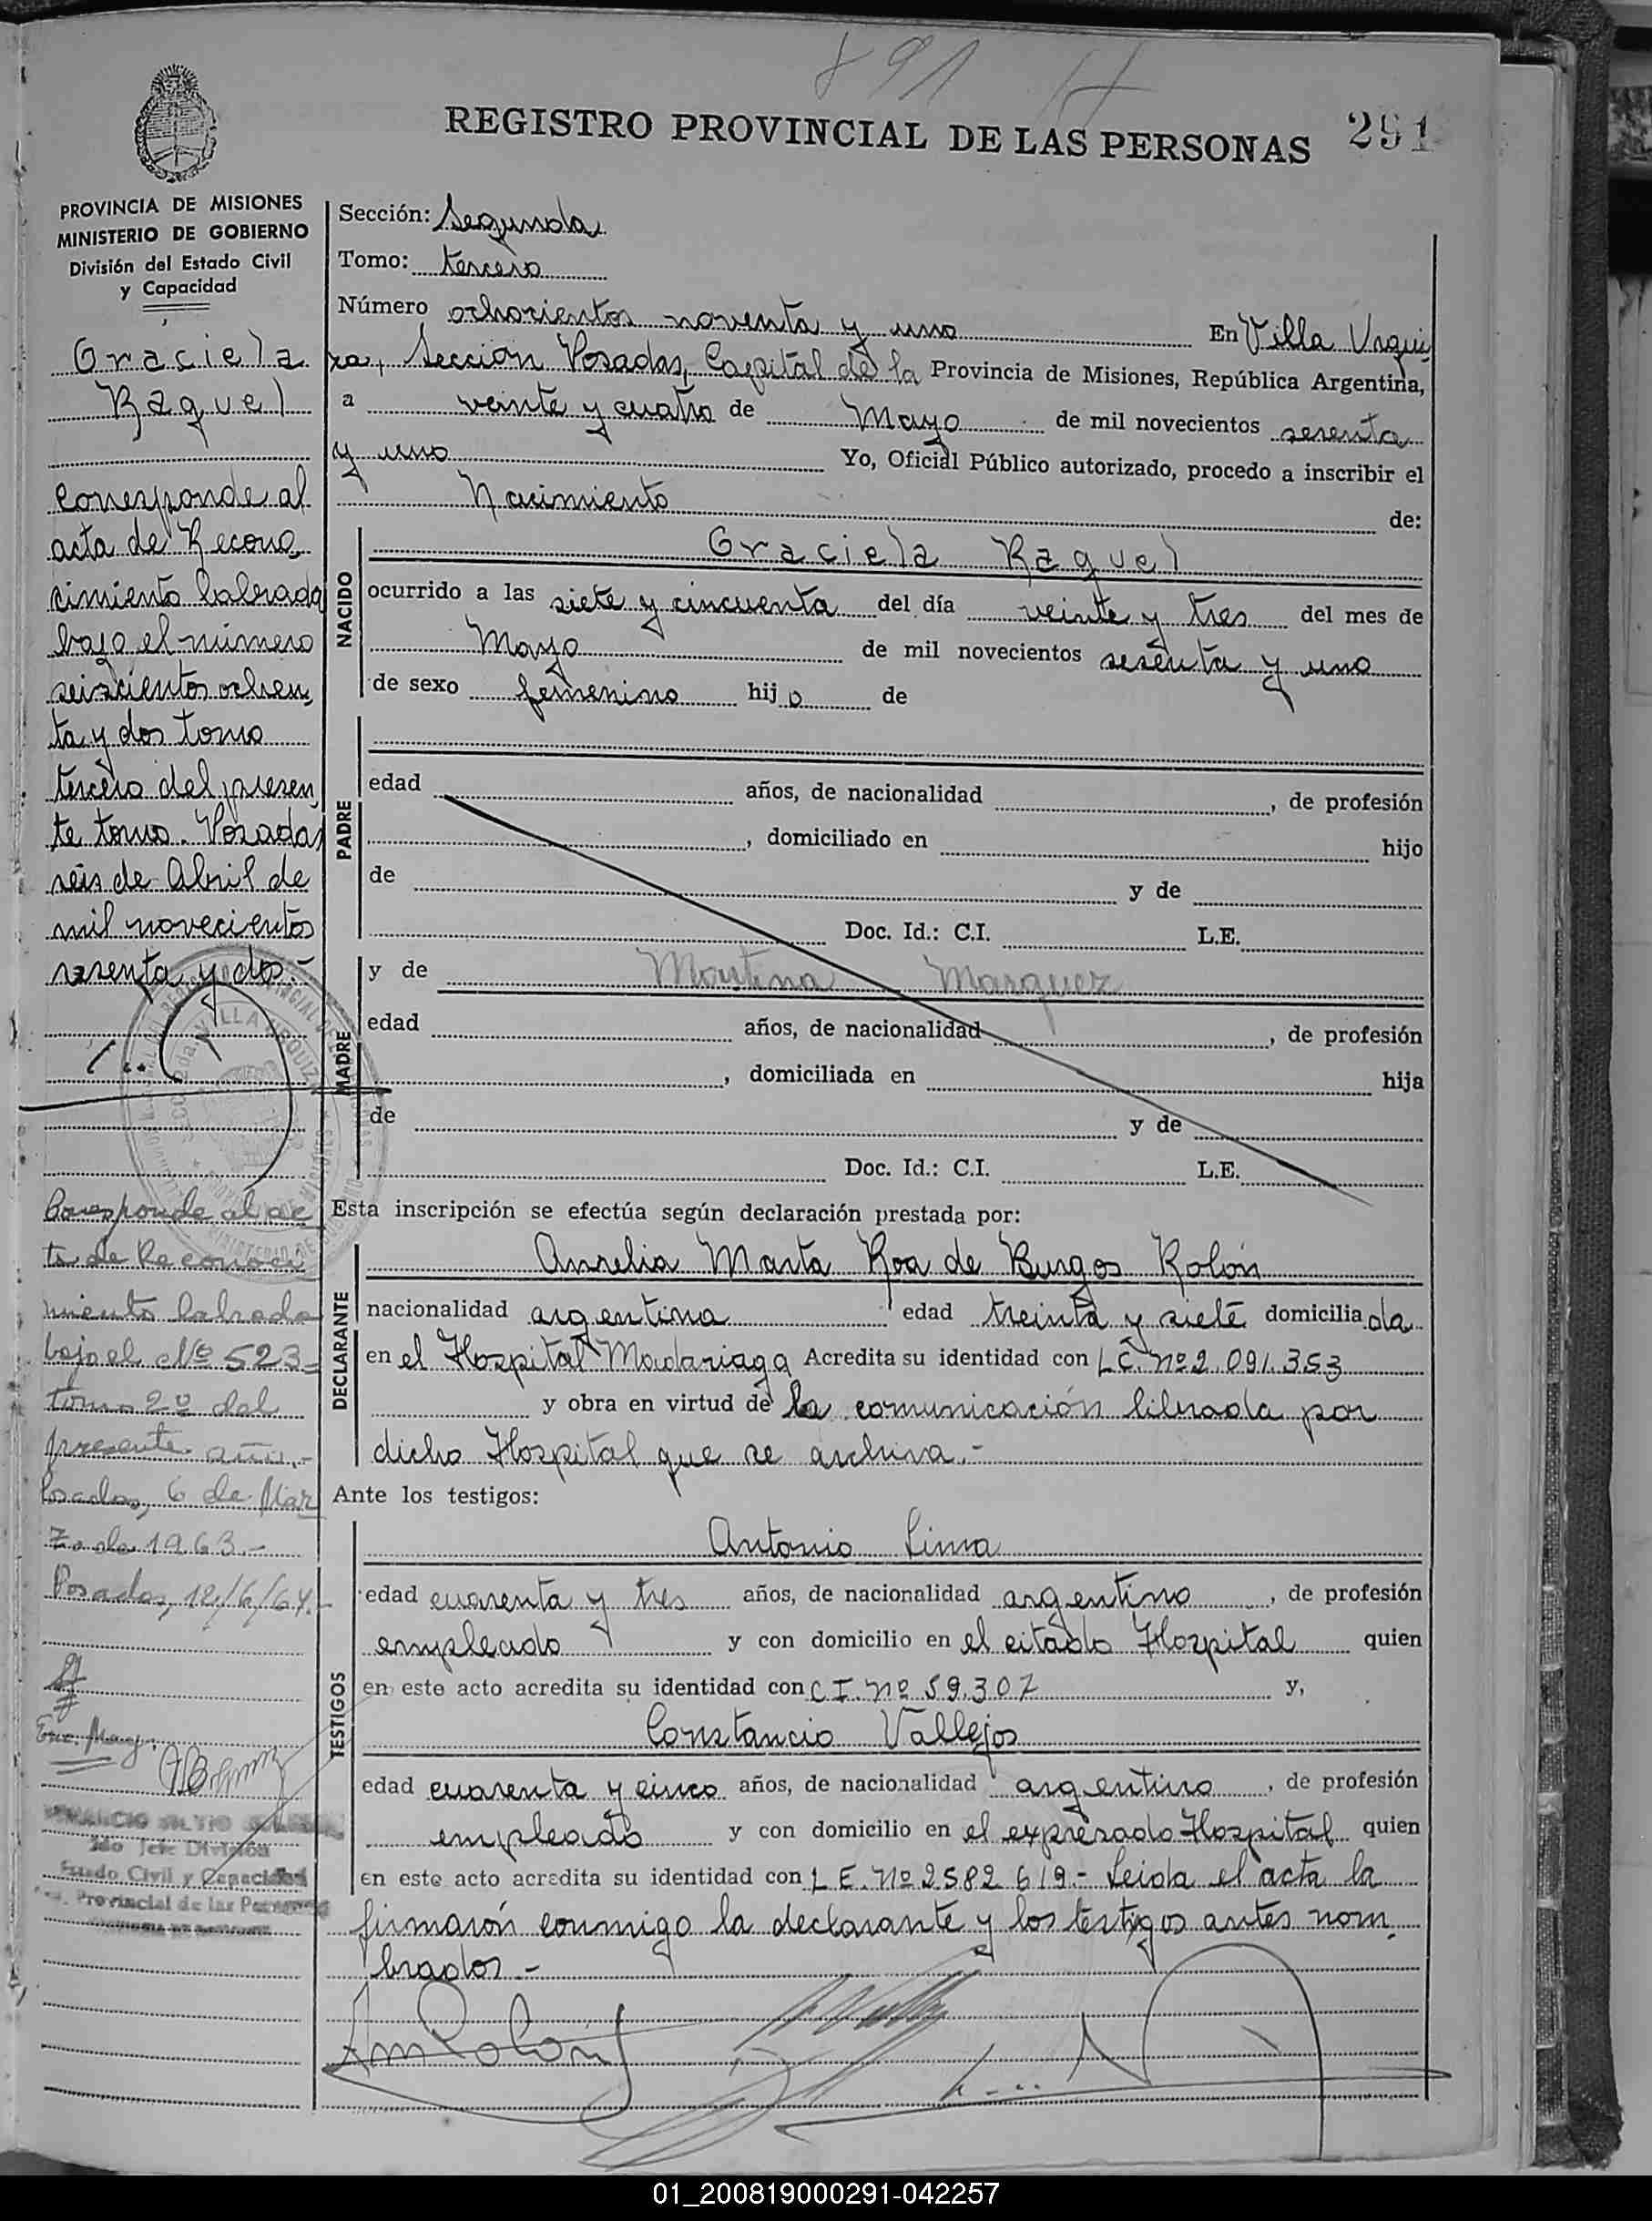 891
REGISTRO PROVINCIAL DE LAS PERSONAS
291
PROVINCIA DE MISIONES
MINISTERIO DE GOBIERNO
División del Estado Civil
y Capacidad
Graciela
Raquel
Corresponde al
acta de Recono
cimiento labrada
bajo el número
seiscientos ochen
ta y dos tomo
tercero del presen
te tomo. Posadas
seis de Abril de
mil novecientos
sesenta y dos.-
Corresponde al ac
ta de Reconoci
miento labrada
bajo el Nº 523-
tomo 2º del
presente año.-
Posadas, 6 de Mar
zo de 1963.-
Posadas, 12/6/64.-
Enc. Mesa
2do Jefe División
Estado Civil y Capacidad
Provincial de las Personas
Sección: Segunda
Tomo: tercero
Número ochocientos noventa y uno En Villa Urqui
za, Sección Posadas, Capital de la Provincia de Misiones, República Argentina,
a veinte y cuatro de Mayo de mil novecientos sesenta
y uno Yo, Oficial Público autorizado, procedo a inscribir el
Nacimiento de:
NACIDO
Graciela Raquel
ocurrido a las siete y cincuenta del día veinte y tres del mes de
Mayo de mil novecientos sesenta y uno
de sexo femenino hijo de
PADRE
edad años, de nacionalidad , de profesión
, domiciliado en hijo
de y de
Doc. Id.: C.I. L.E.
MADRE
y de Martina Marquez
edad años, de nacionalidad , de profesión
, domiciliada en hija
de y de
Doc. Id.: C.I. L.E.
Esta inscripción se efectúa según declaración prestada por:
DECLARANTE
Aurelia Marta Roa de Burgos Rolón
nacionalidad argentina edad treinta y siete domiciliada
en el Hospital Madariaga Acredita su identidad con L.C. nº 2.091.353
y obra en virtud de la comunicación librada por
dicho Hospital que se archiva.-
Ante los testigos:
TESTIGOS
Antonio Lima
edad cuarenta y tres años, de nacionalidad argentino , de profesión
empleado y con domicilio en el citado Hospital quien
en este acto acredita su identidad con C I. nº 59.307 y,
Constancio Vallejos
edad cuarenta y cinco años, de nacionalidad argentino , de profesión
empleado y con domicilio en el expresado Hospital quien
en este acto acredita su identidad con L E. nº 2582 619.- Leida el acta la
firmarón conmigo la declarante y los testigos antes nom
brados.-
AmRolón
01_200819000291-042257